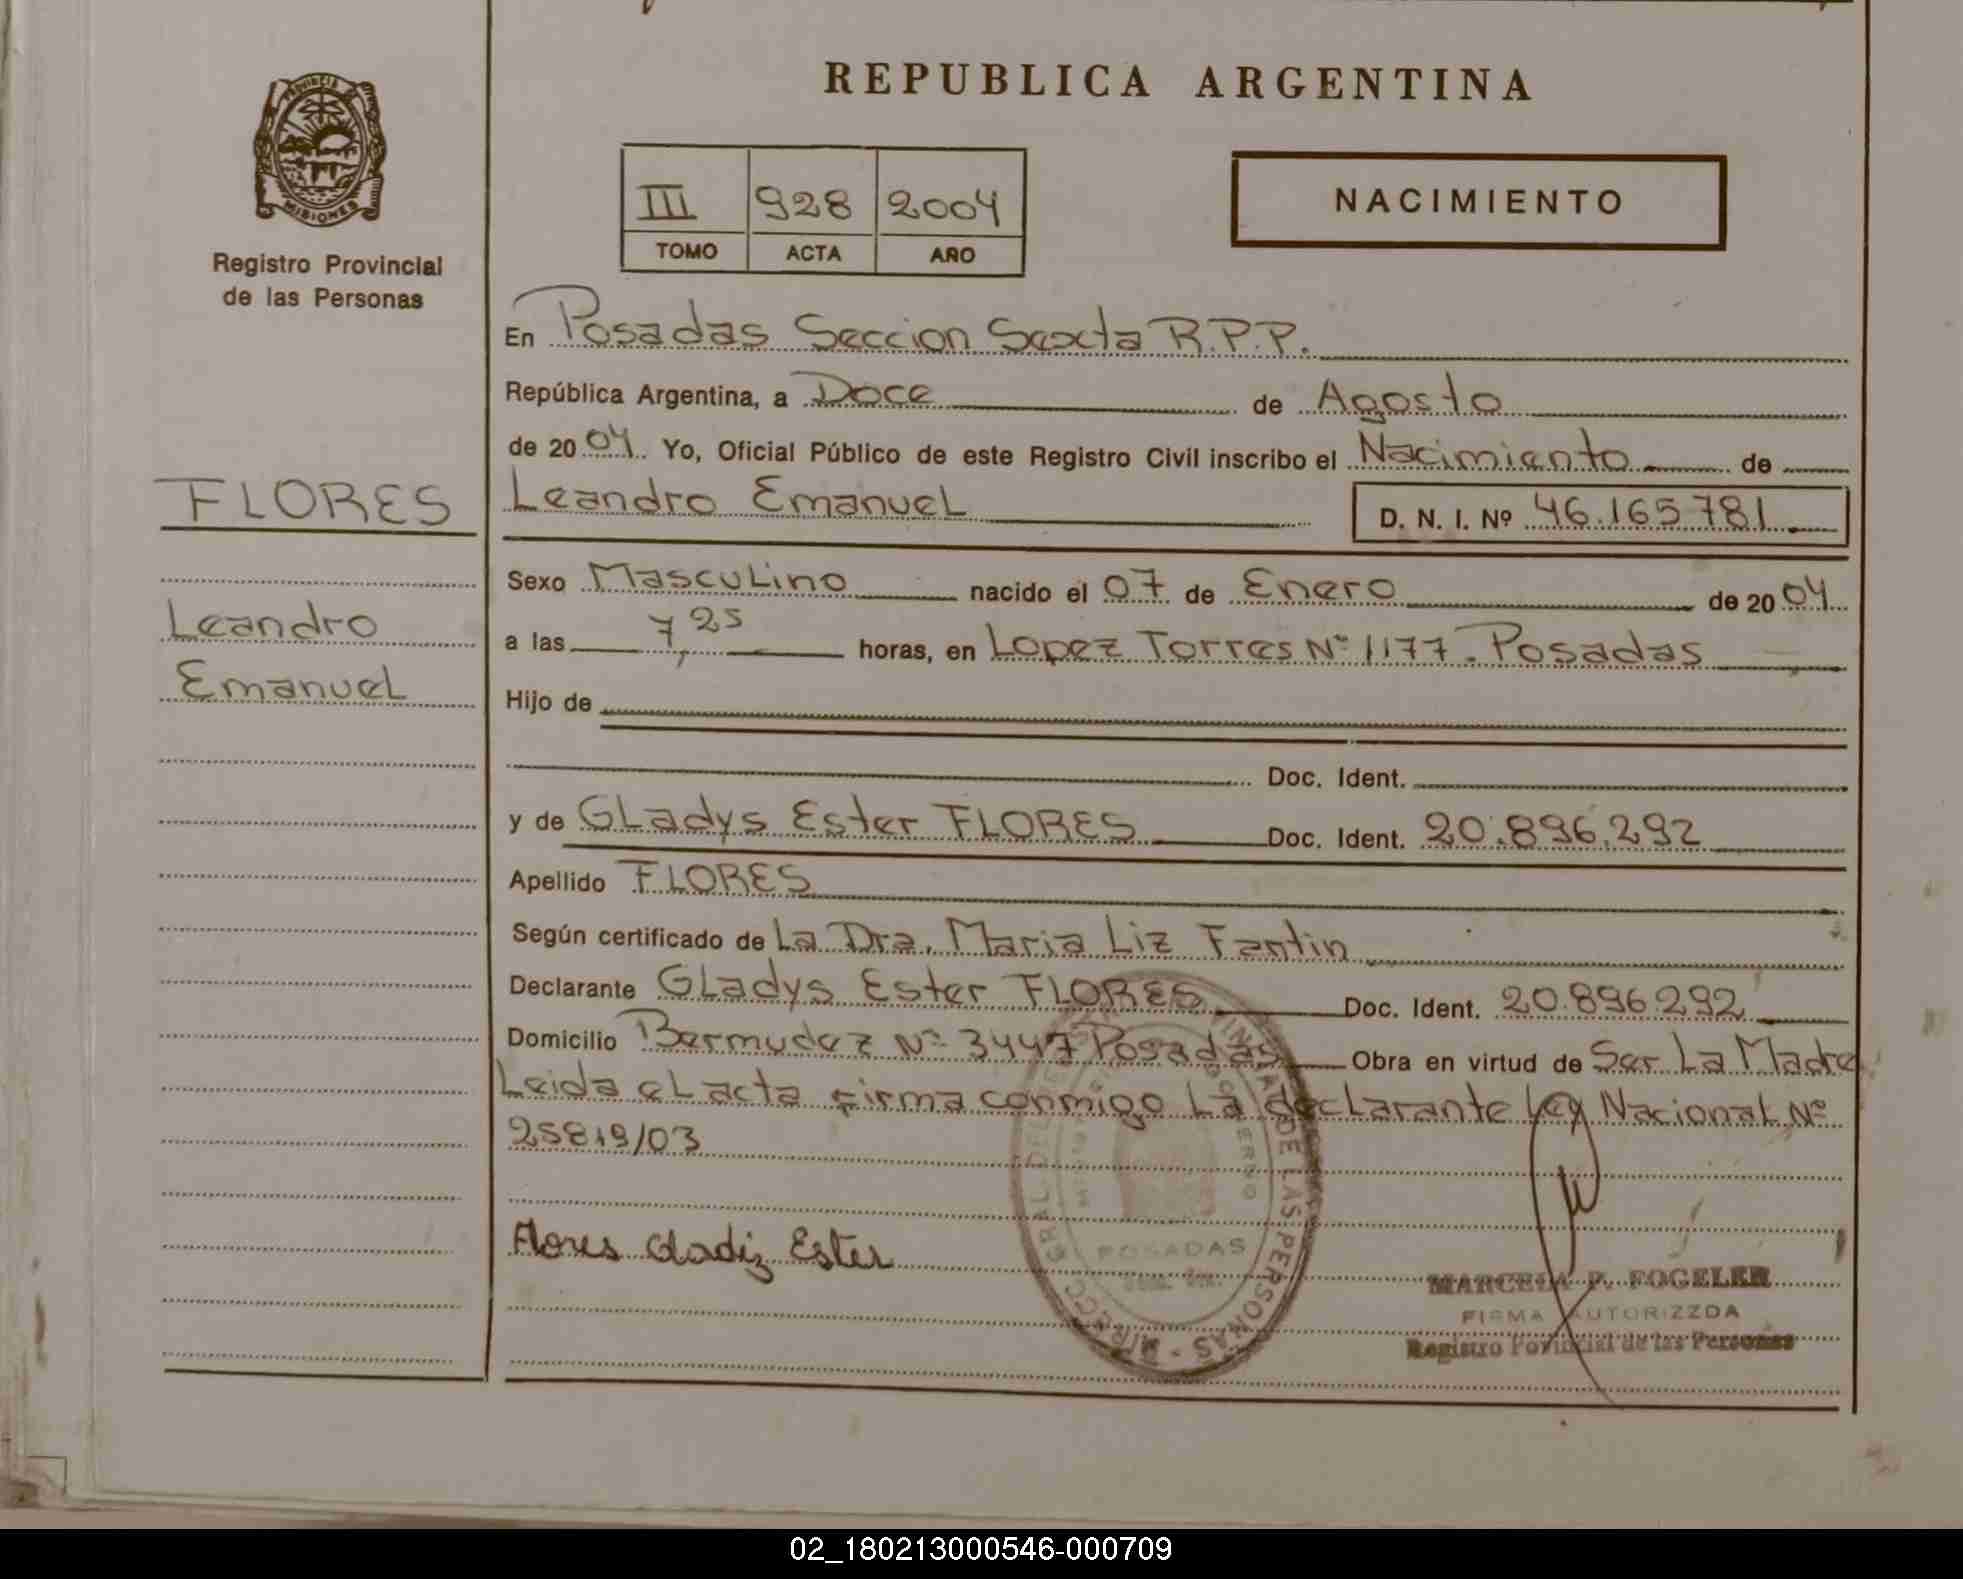 REPUBLICA ARGENTINA
PROVINCIA DE MISIONES
Registro Provincial
de las Personas
III 928 2004
TOMO ACTA AÑO
NACIMIENTO
En Posadas Seccion Sexta R.P.P.
República Argentina, a Doce de Agosto
de 2004. Yo, Oficial Público de este Registro Civil inscribo el Nacimiento de
FLORES
Leandro Emanuel D. N. I. Nº 46.165781
Sexo Masculino nacido el 07 de Enero de 2004
Leandro
a las 7,25 horas, en Lopez Torres Nº 1177. Posadas
Emanuel
Hijo de
Doc. Ident.
y de Gladys Ester FLORES Doc. Ident. 20.896.292
Apellido FLORES
Según certificado de La Dra. Maria Liz Fantin
Declarante Gladys Ester FLORES Doc. Ident. 20.896292
Domicilio Bermudez Nº 3447 Posadas Obra en virtud de Ser La Madre
Leida el acta firma conmigo La declarante Ley Nacional Nº
25819/03
Flores Gladiz Ester
POSADAS
MARCELA P. FOGELER
FIRMA AUTORIZZDA
Registro Povincial de las Personas
02_180213000546-000709